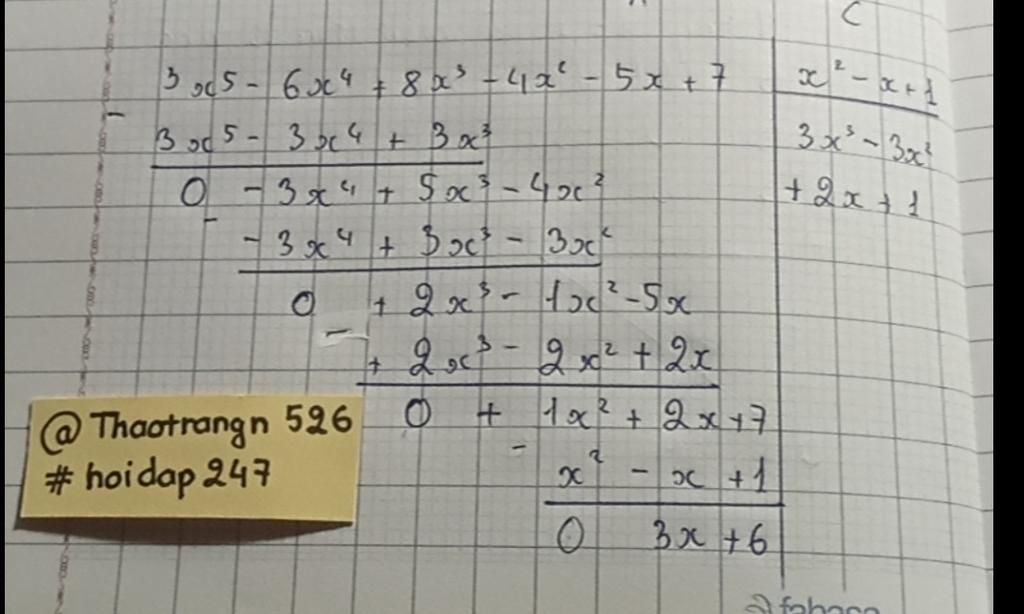 3x⁵ - 6x⁴ + 8x³ - 4x² - 5x + 7
x² - x + 1
-
3x⁵ - 3x⁴ + 3x³
3x³ - 3x²
0 - 3x⁴ + 5x³ - 4x²
+ 2x + 1
-
- 3x⁴ + 3x³ - 3x²
0 + 2x³ - 1x² - 5x
-
+ 2x³ - 2x² + 2x
0 + 1x² + 2x + 7
-
x² - x + 1
0 3x + 6
@ Thaotrangn 526
# hoidap 247